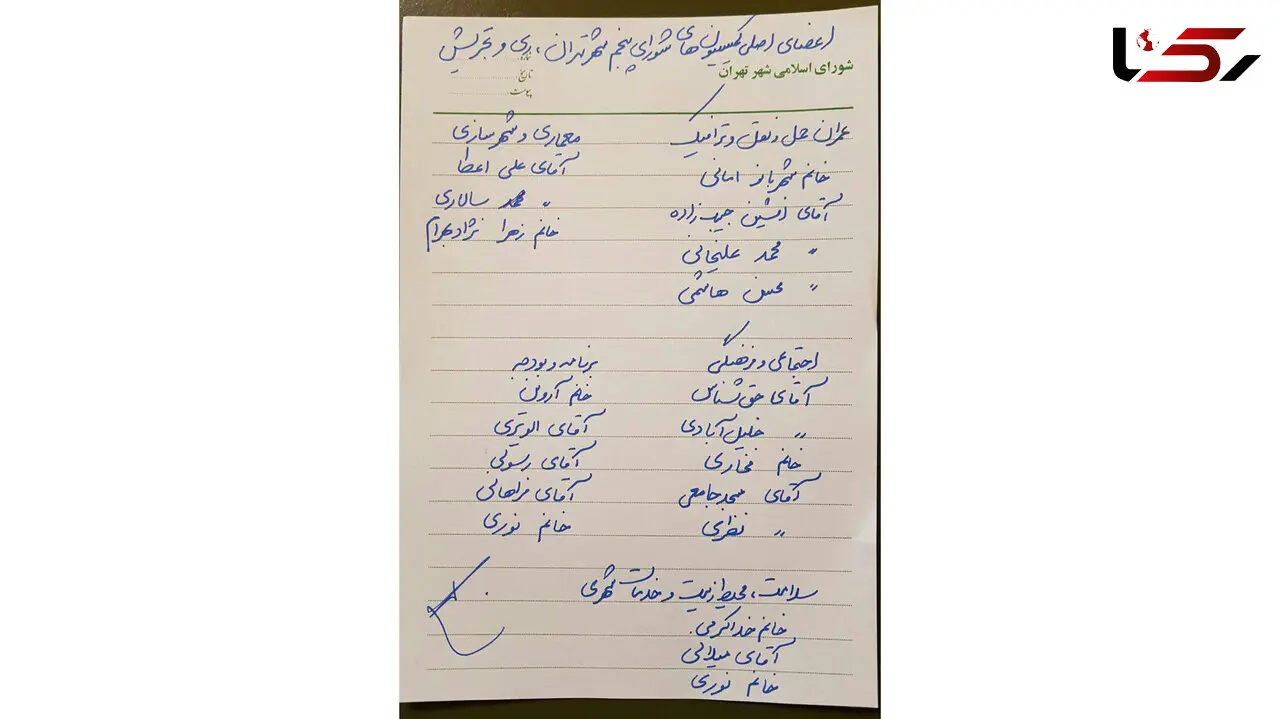 رکنا
اعضای اصلی کمیسیون های شورای پنجم شهر تهران، ری و تجریش
شورای اسلامی شهر تهران
شماره
تاریخ
پیوست
عمران حمل و نقل و ترافیک
خانم شهربانو امانی
آقای افشین حبیب زاده
〃 محمد علیخانی
〃 محسن هاشمی
معماری و شهرسازی
آقای علی اعطا
〃 محمد سالاری
خانم زهرا نژادبهرام
اجتماعی و فرهنگی
آقای حق شناس
〃 خلیل آبادی
خانم فخاری
آقای مسجدجامعی
〃 نظری
برنامه و بودجه
خانم آروین
آقای الویری
آقای رسولی
آقای فراهانی
خانم نوری
سلامت، محیط زیست و خدمات شهری
خانم خداکرمی
آقای میلانی
خانم نوری